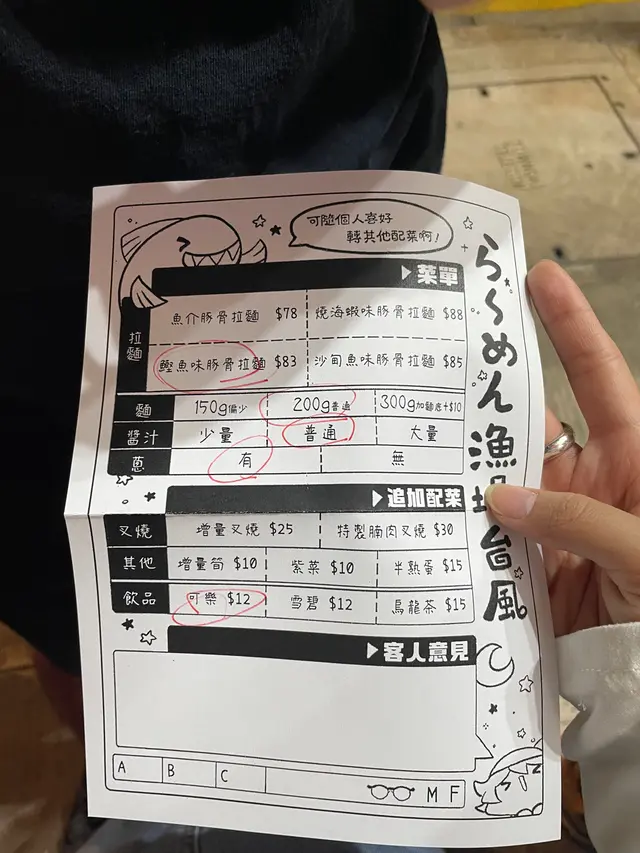 可隨個人喜好
轉其他配菜啊!
菜單
拉麵
魚介豚骨拉麵 $78 燒海蝦味豚骨拉麵 $88
鰹魚味豚骨拉麵 $83 沙甸魚味豚骨拉麵 $85
麵 150g偏少 200g普通 300g加麵底+$10
醬汁 少量 普通 大量
蔥 有 無
追加配菜
叉燒 增量叉燒 $25 特製腩肉叉燒 $30
其他 增量筍 $10 紫菜 $10 半熟蛋 $15
飲品 可樂 $12 雪碧 $12 烏龍茶 $15
客人意見
A B C M F
ら〜めん漁場台風